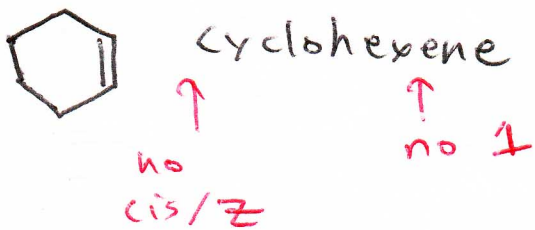 cyclohexene
no
cis/Z
no 1